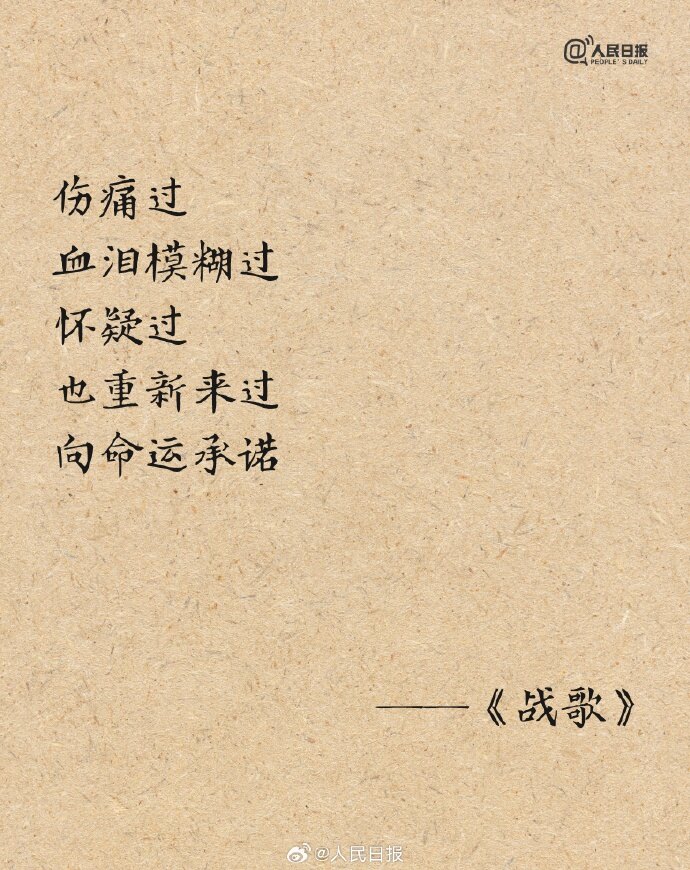 @人民日报
PEOPLE'S DAILY
伤痛过
血泪模糊过
怀疑过
也重新来过
向命运承诺
——《战歌》
@人民日报